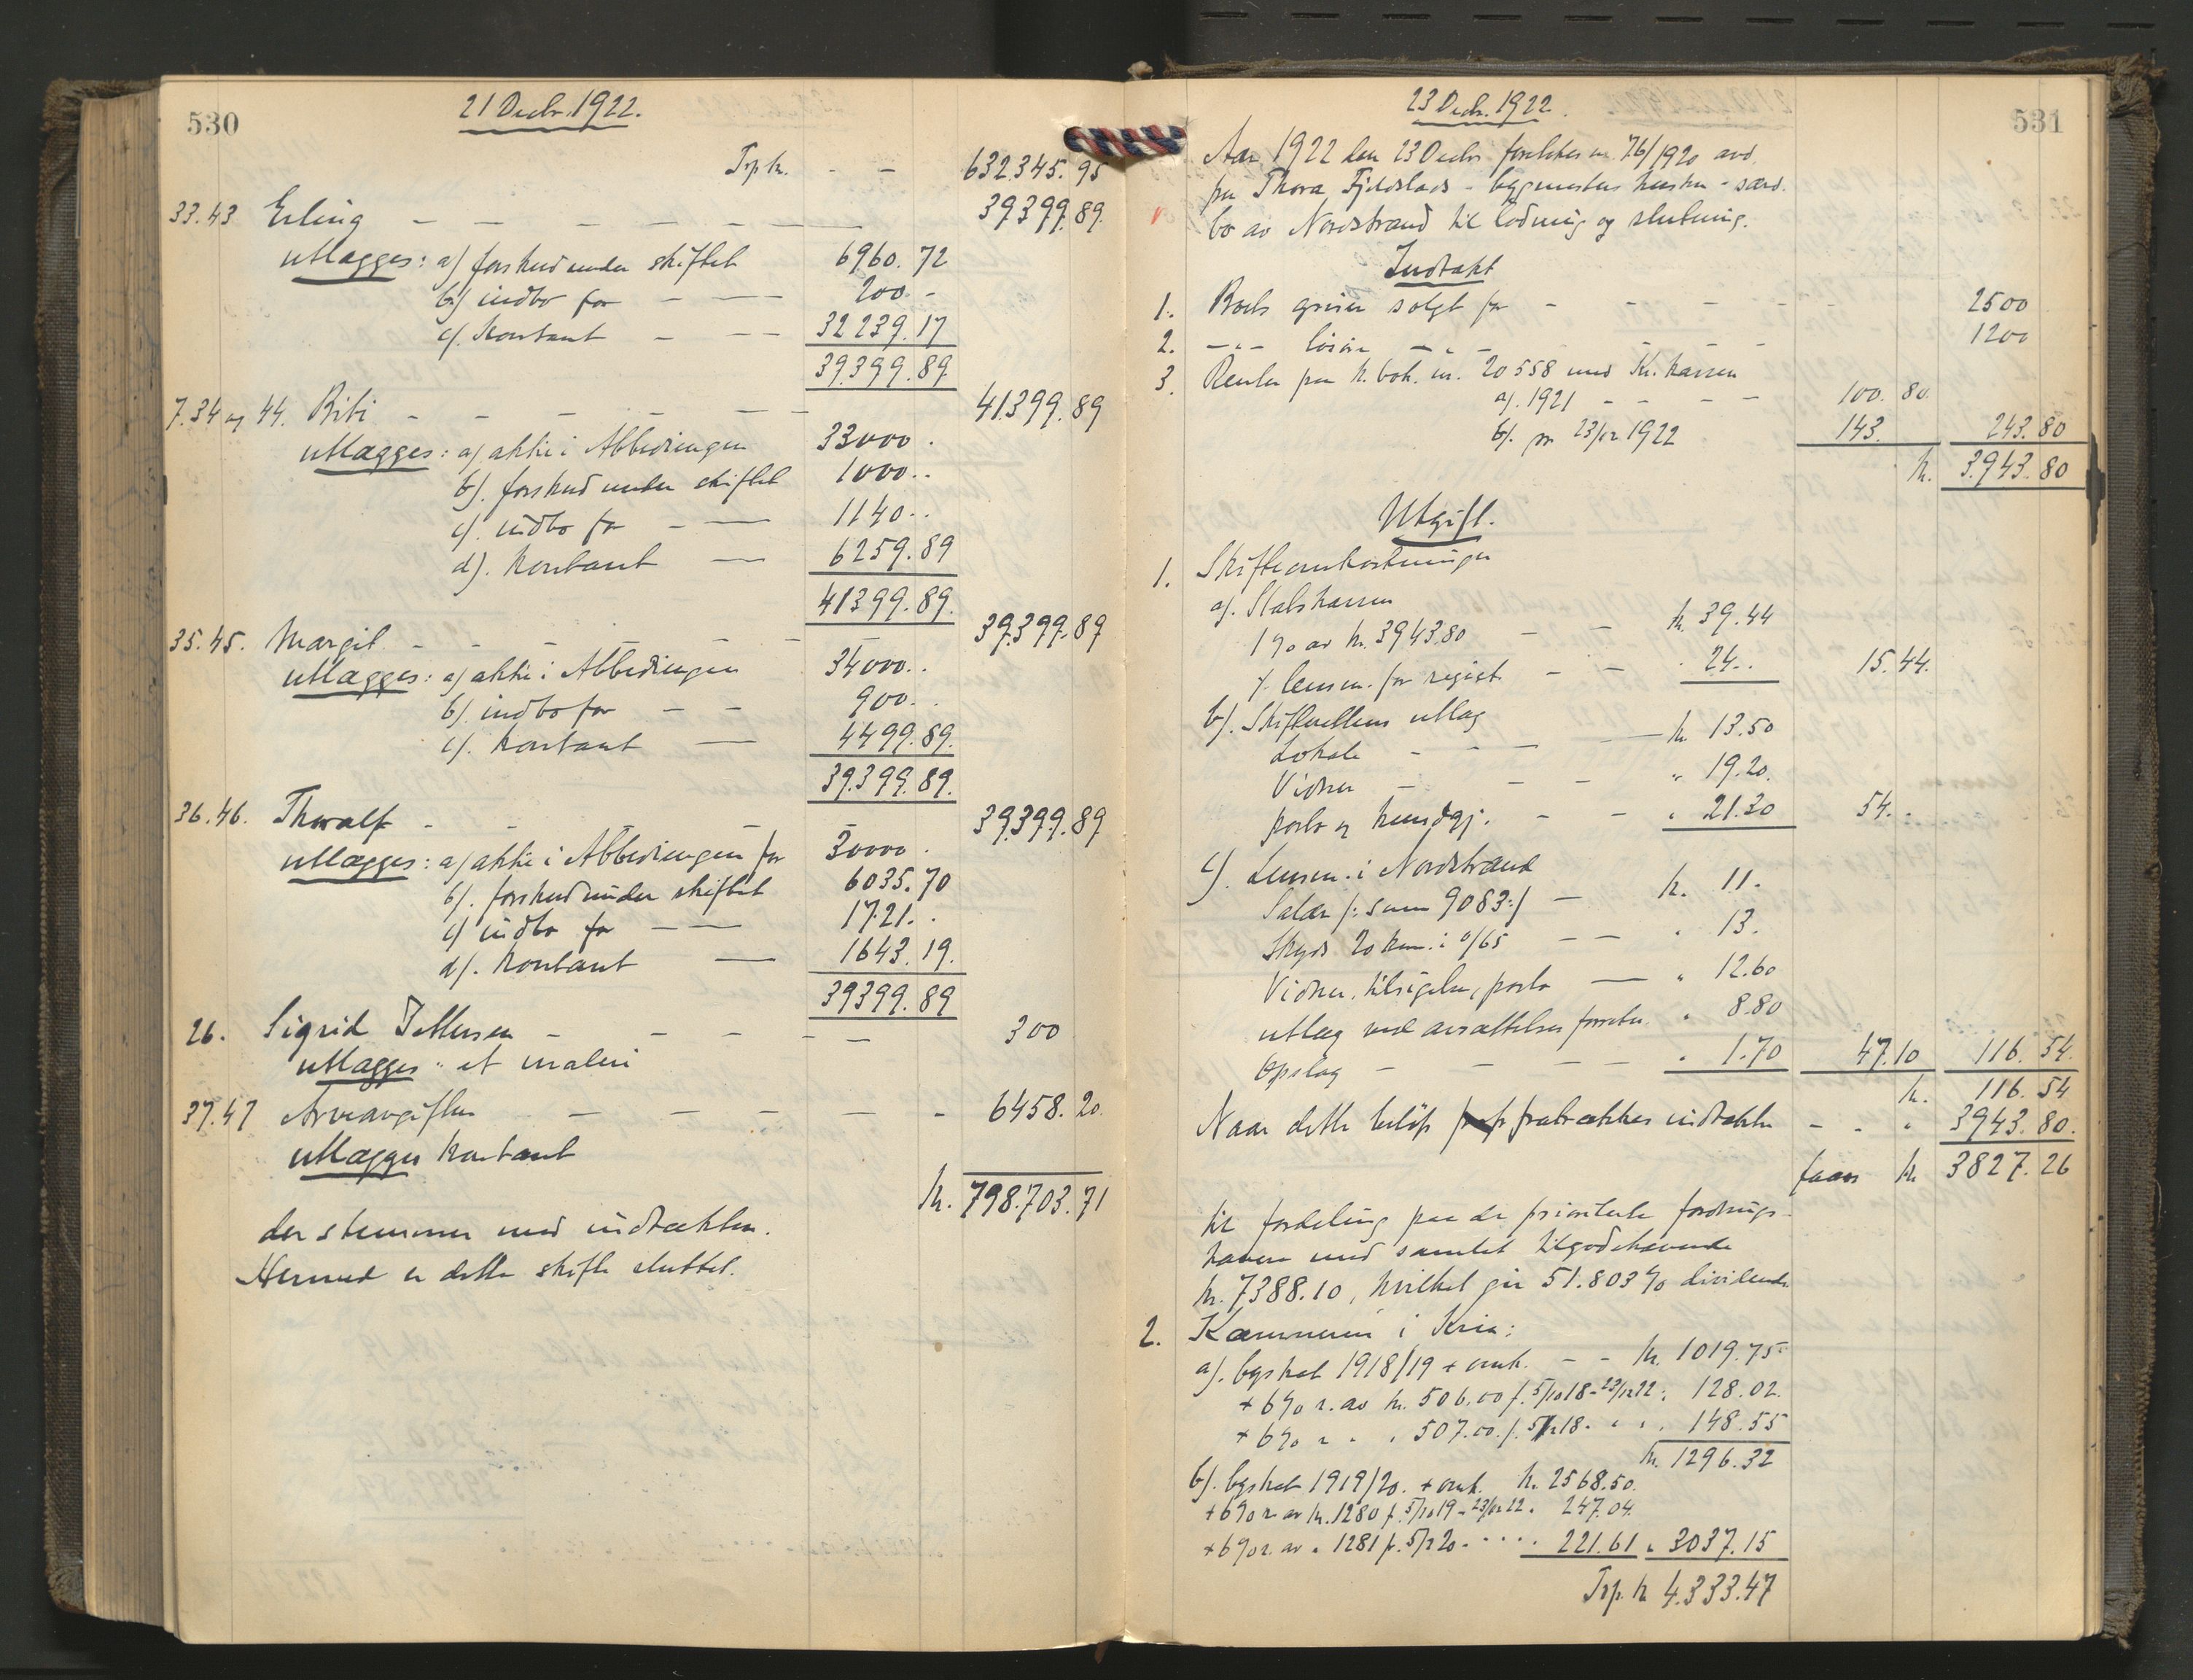 530
21 Decbr. 1922.
Trp kr. - - 632345.95
33.43 Erling - - - - - - 39399.89.
utlægges: a/ forskud under skiftet 6960.72
b/ indbo for - - 200 -
c/. Kontant - - 32239.17
39399.89.
7.34 og 44. Bibi - - - - - 41399.89
utlægges: a/ aktie i Abbediengen 33000.
b/. forskud under skiftet 1000..
c/. indbo for - - 1140..
d/. Kontant - 6259.89
41399.89.
35.45. Margit - - - - - - 39399.89
utlægges: a/ aktie i Abbediengen 34000..
b/. indbo for - - 900..
c/. Kontant - 4499.89.
39.399.89.
36.46. Thoralf - - - - 39.399.89
utlægges: a/ aktie i Abbediengen for 30000.
b/. forskud under skiftet 6035.70
c/ indbo for - - 1721..
d/. Kontant - 1643.19.
39399.89
26. Sigrid - - - - - 300
utlægges: et maleri
37.47 Arveavgiften - - - - - 6458.20.
utlægges kontant
kr. 798.703.71
der stemmer med indtækten.
Hermed er dette skifte sluttet.
531
23 Decbr. 1922.
Aar 1922 den 23 Decbr foretokes nr. 76/1920 avd.
fru Thora Fjeldstads - bygmesters hustru - særd.
bo av Nordstrand til lodning og slutning.
Indtækt
1. Boets griser solgt for - - - - 2500
2. -"- løsøre -"- - - - 1200
3. Renter paa k.bok. nr. 20558 med Kr. kassen
a/. 1921 - - - - 100.80.
b/. pr 23/12 1922 143. 243.80
kr. 3943.80
Utgift.
1. Skifteomkostninger
a/. Statskassen
1% av kr. 3943.80 - - kr. 39.44
÷ lensm. for regist - - 24.. 15.44.
b/. Skifterettens utlæg
Lokale - - - kr. 13.50
Vidner - - - " 19.20.
porto og kundgj. - - " 21.30 54..
c/. Lensm. i Nordstrand
Salær /: sum 9083:/ - kr. 11.
Skyds 20 km. à 0/65 - - " 13.
Vidner, tilsigelse, porto - " 12.60
utlæg ved avsættelses forretn. " 8.80
Opslag - - - - " 1.70 47.10 116.54.
kr. 116.54
Naar dette beløp fratrækkes indtækten - - " 3943.80.
faaes kr 3827.26
til fordeling paa de prioriterte fordrings-
havere med samlet tilgodehavende
kr. 7388.10, hvilket gir 51.803% dividende
2. Kæmneren i Kria:
a/. byskat 1918/19 + omk. - - kr. 1019.75
+ 6% r. av kr. 506.00 f. 5/10 18 - 23/12 22 " 128.02.
+ 6% r " " 507.00. f. 5/2 18 - " " " 148.55
kr. 1296.32
b/. byskat 1919/20. + omk. kr. 2568.50.
+ 6% r av kr. 1280 f. 5/10 19 - 23/12 22 " 247.04.
+ 6% r. av " 1281 f. 5/2 20 - " " " 221.61 " 3037.15
Trp. kr 4.333.47